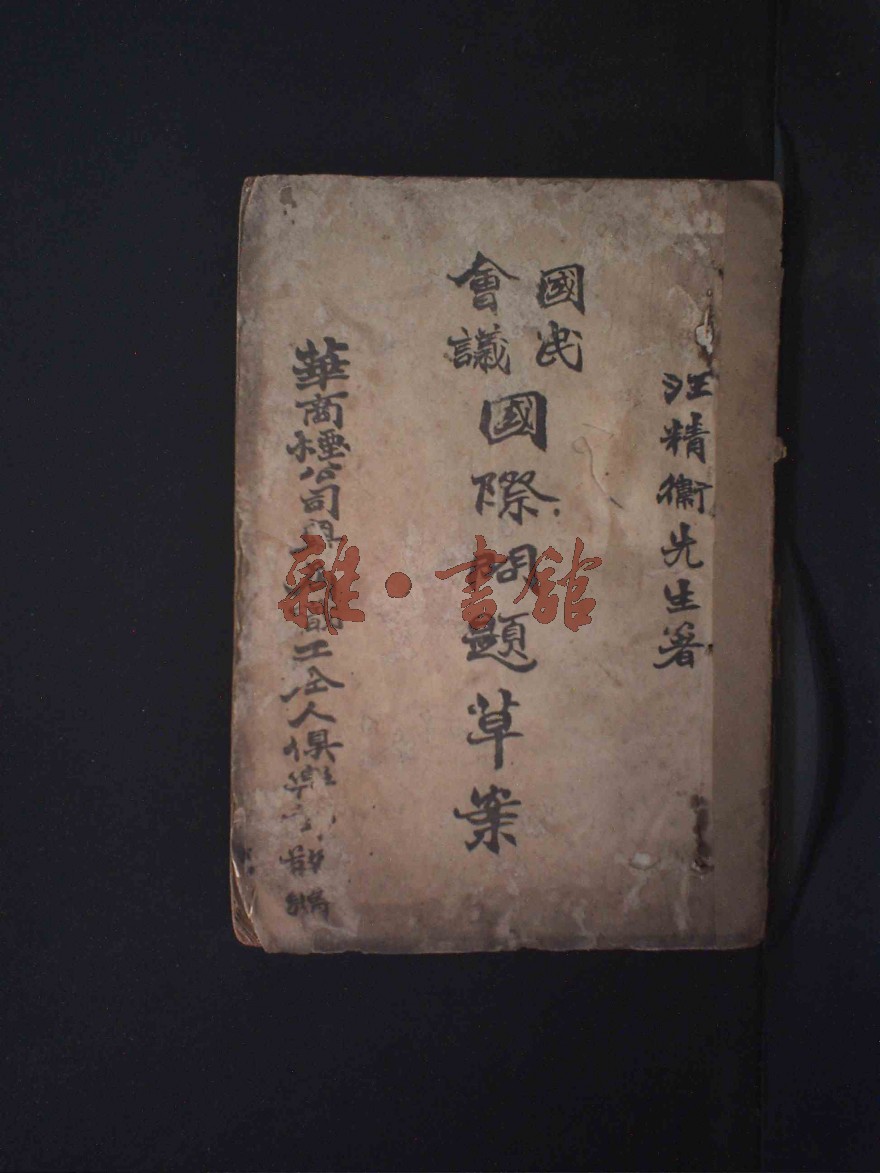 汪精衛先生著
國民
會議
國際問題草案
華商 公司 職工仝人俱
雜·書館